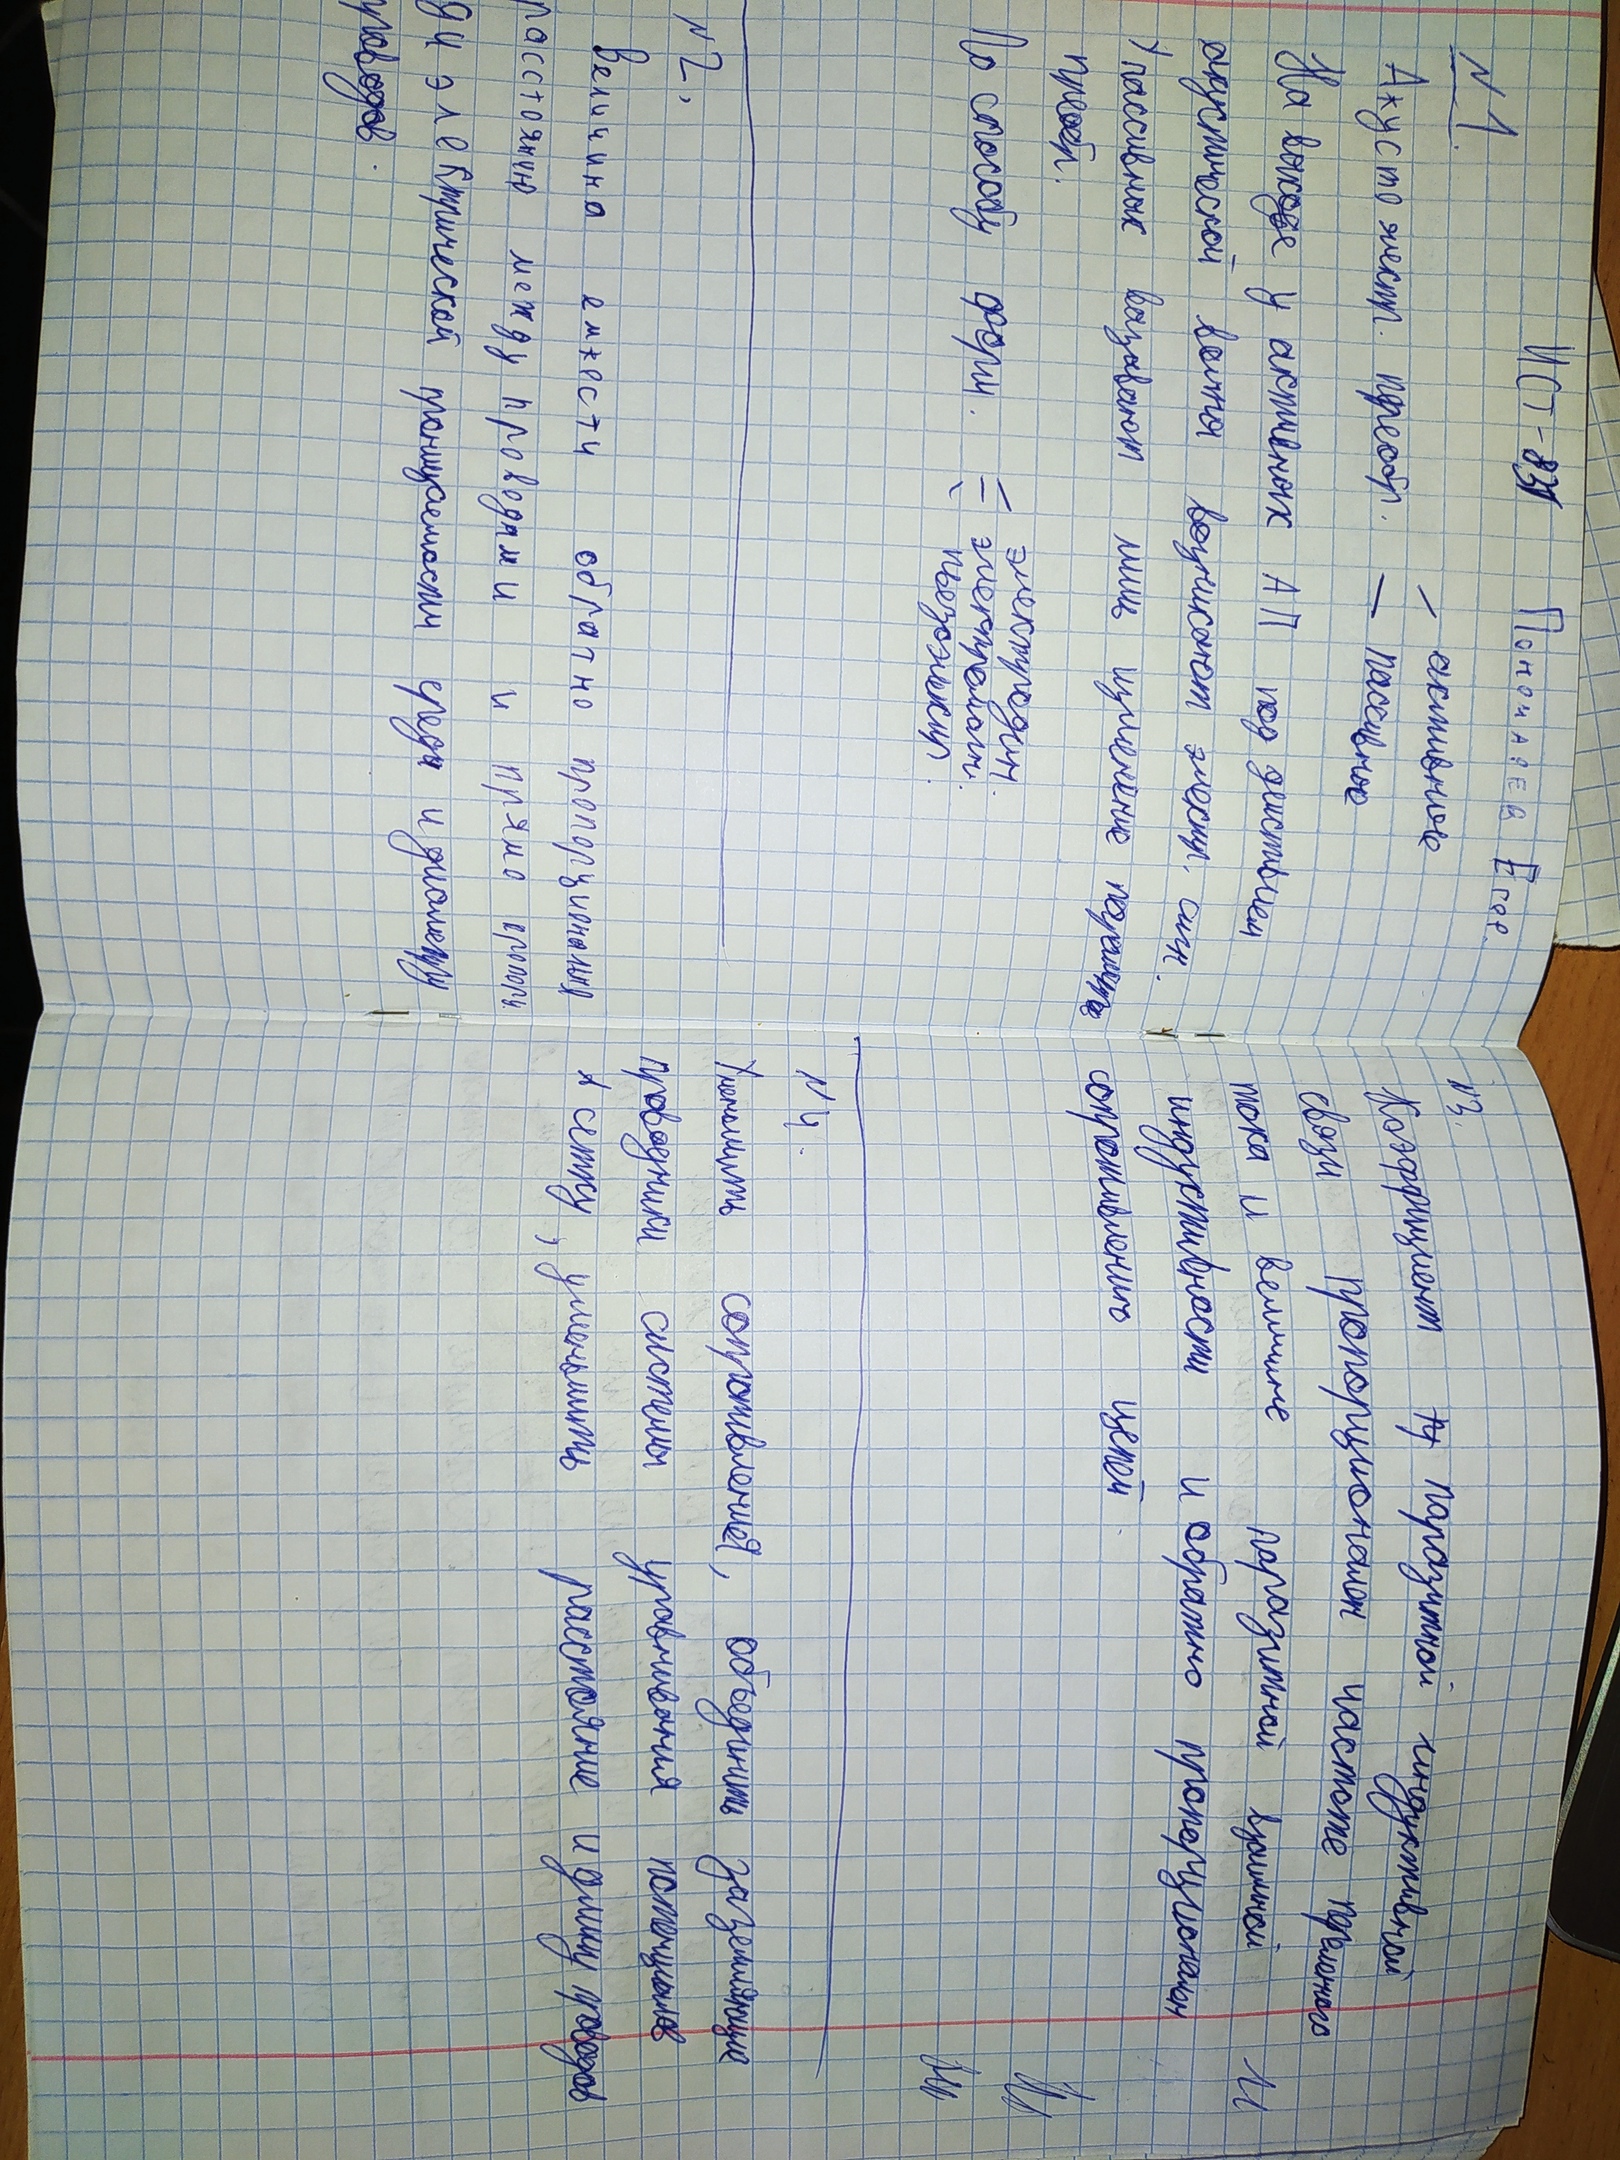 ИСТ-831 Пономарев Егор.
№1.
Акустоэлект. преобр. — активные
— пассивные
На выходе у активных АП под действием
акустической волны возникают элект. сигн.
У пассивных вызывают лишь изменение
преобр.
По способу форм. = электродин.
электромагн.
пьезоэлект.
№2.
Величина емкости обратно пропорциональна
расстоянию между проводами и прямо пропорц.
ди электрической проницаемости среды и диаметру
проводов.
№3.
Коэффициент паразитной индуктивной
связи пропорционален частоте
тока и величине паразитной взаимной
индуктивности и обратно пропорционален
сопротивлению цепей.
№4.
Уменьшить сопротивление, объединить заземляющие
проводники системы уравнивания потенциалов
в сетку, уменьшить расстояние и длину проводов